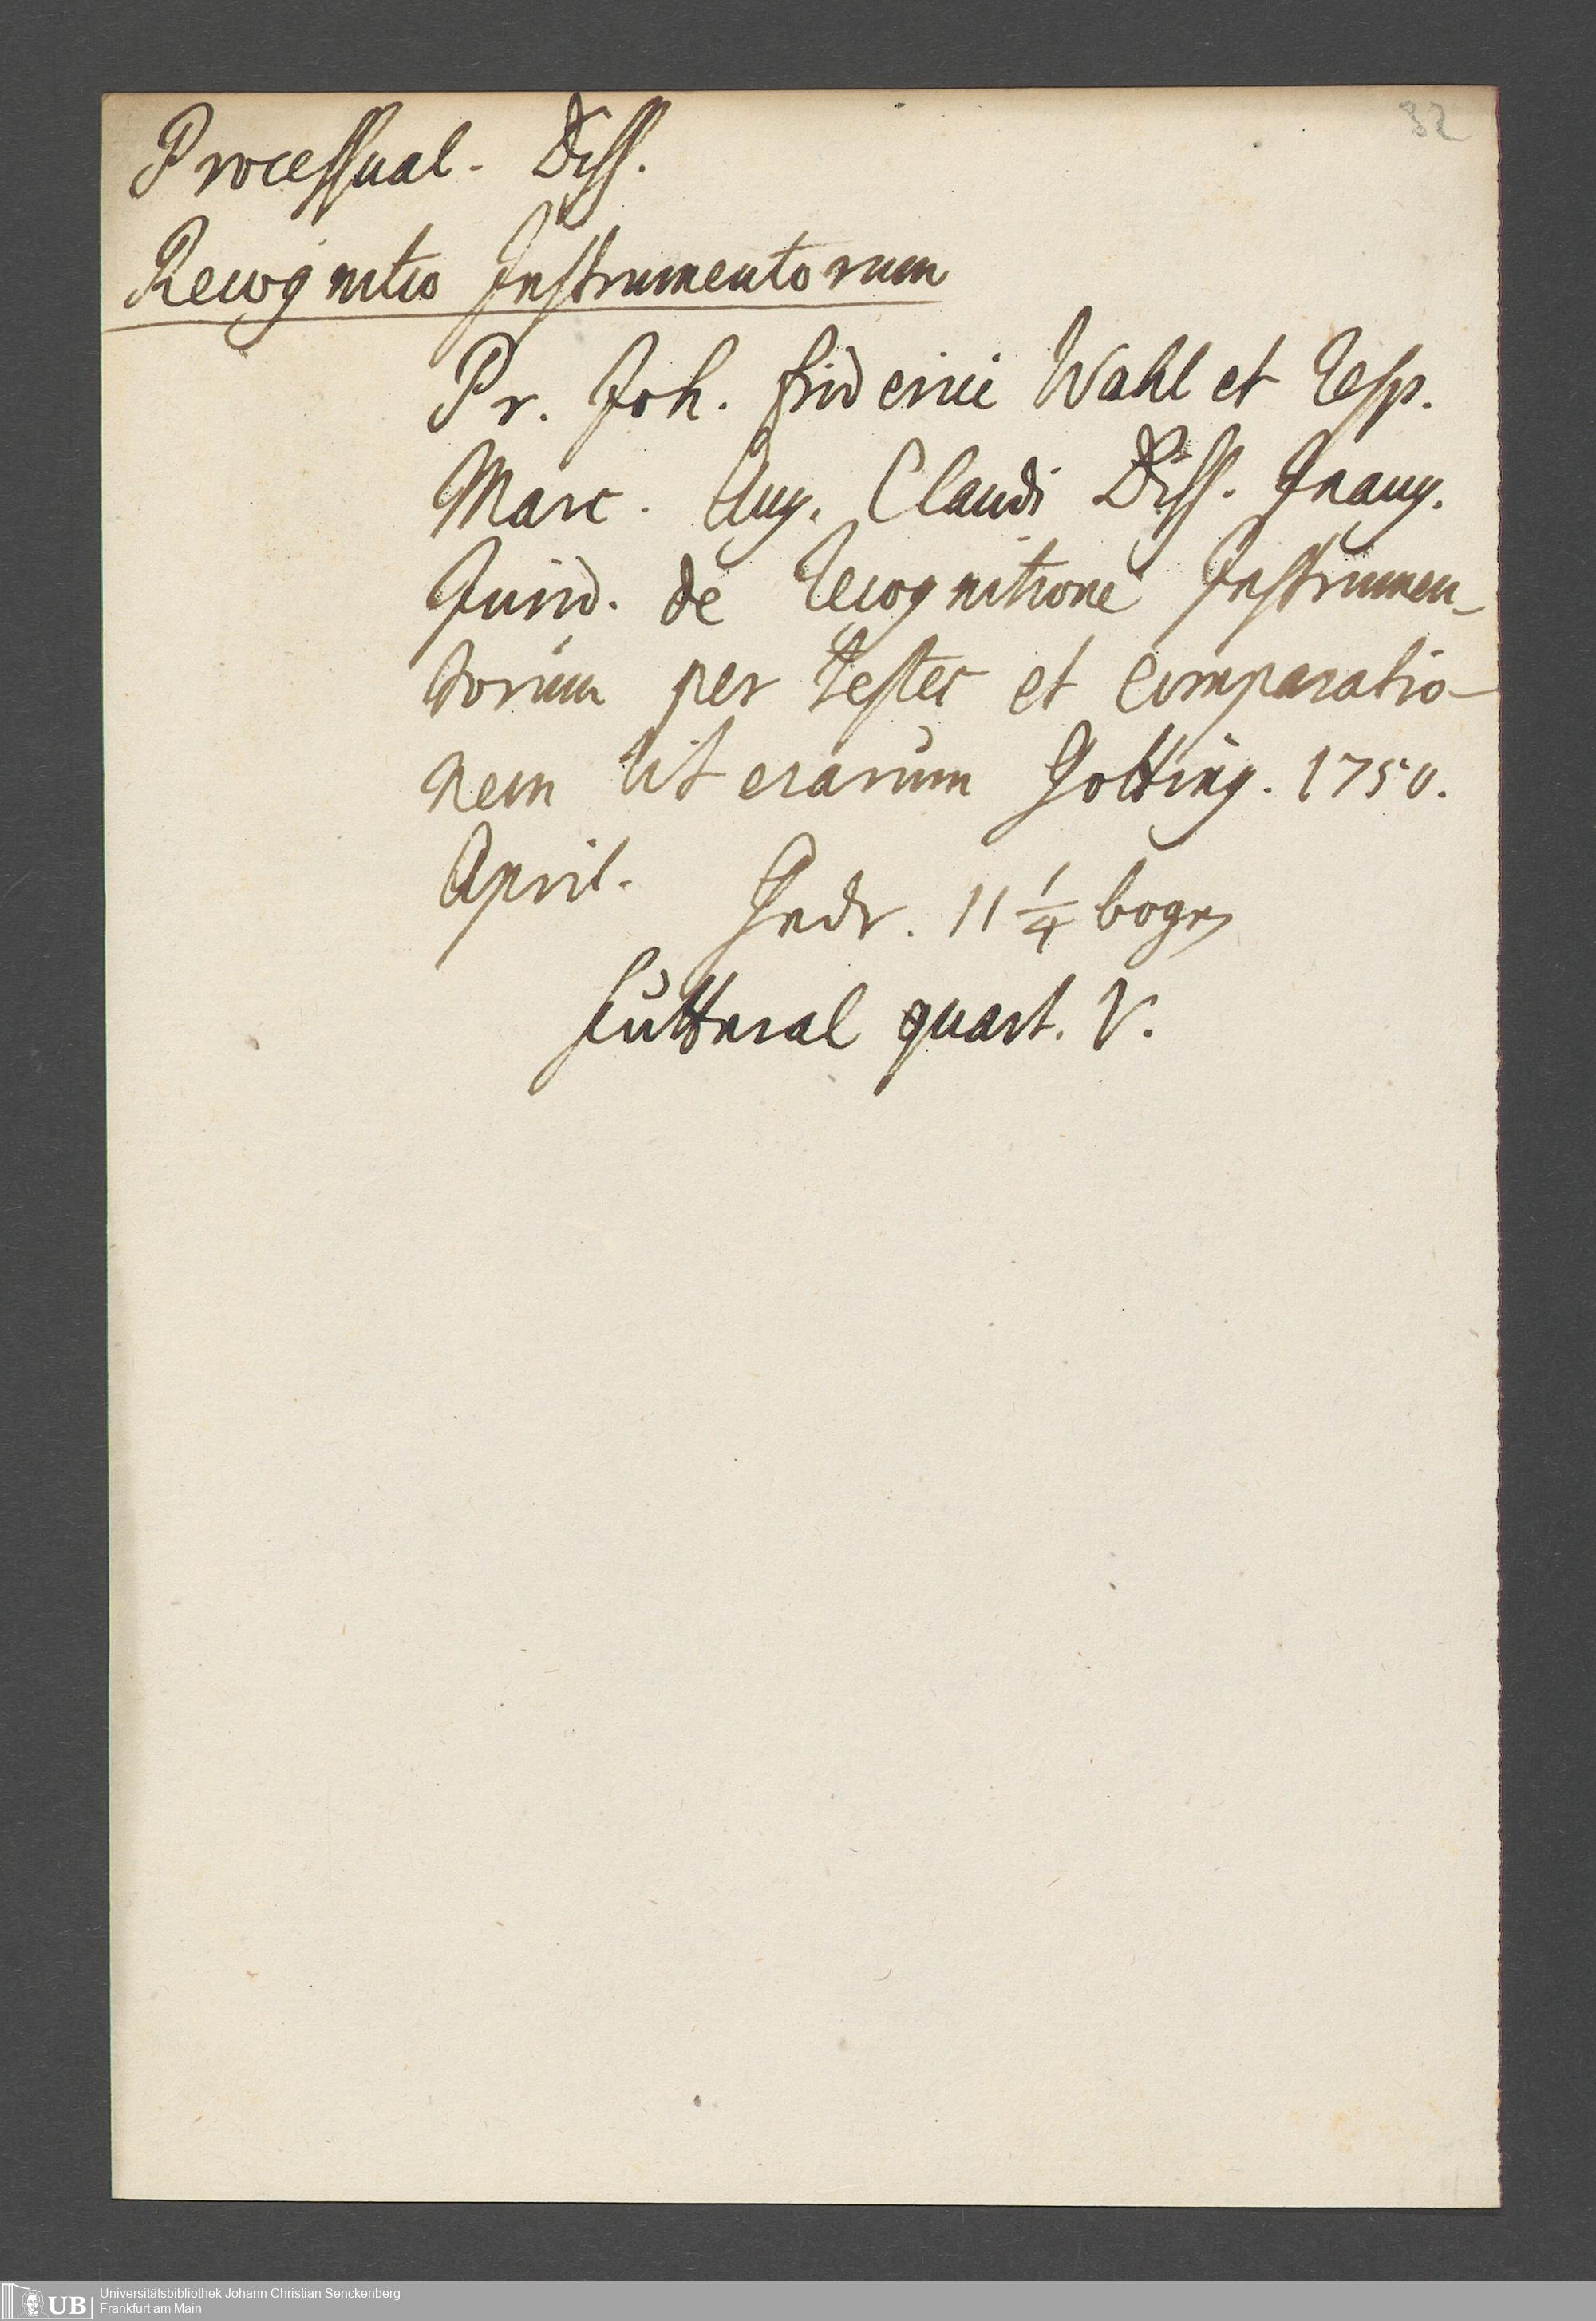 82
Processual. Diss.
Recognitio Instrumentorum
Pr. Joh. friderici Wahl et Resp.
Marc. Aug. Claudi Diss. Inaug.
Jurid. de Recognitione Instrumen-
torum per testes et comparatio-
nem literarum Gotting. 1750.
April. Gedr. 11 1/4 bogen
futteral quart. V.
UB Universitätsbibliothek Johann Christian Senckenberg
Frankfurt am Main